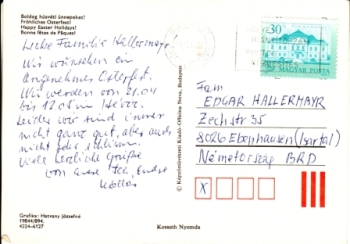 Boldog húsvéti ünnepeket!
Fröhliches Osterfest!
Happy Easter Holidays!
Bonne fêtes de Pâques!
Liebe Familie Hallermayr!
Wir wünschen ein
angenehmes Osterfest.
Wir werden von 21.04
bis 12.05 in
Leider wir sind immer
nicht ganz gut, aber auch
nicht sehr schlimm.
Viele herzliche Grüße
von
Grafika: Hervay Józsefné
Kossuth Nyomda
© Képzőművészeti Kiadó Officina Nova, Budapest
30
MAGYAR POSTA
Fam
EDGAR HALLERMAYR
Zechstr 35
8026 Ebenhausen (Isartal)
Németország BRD
X